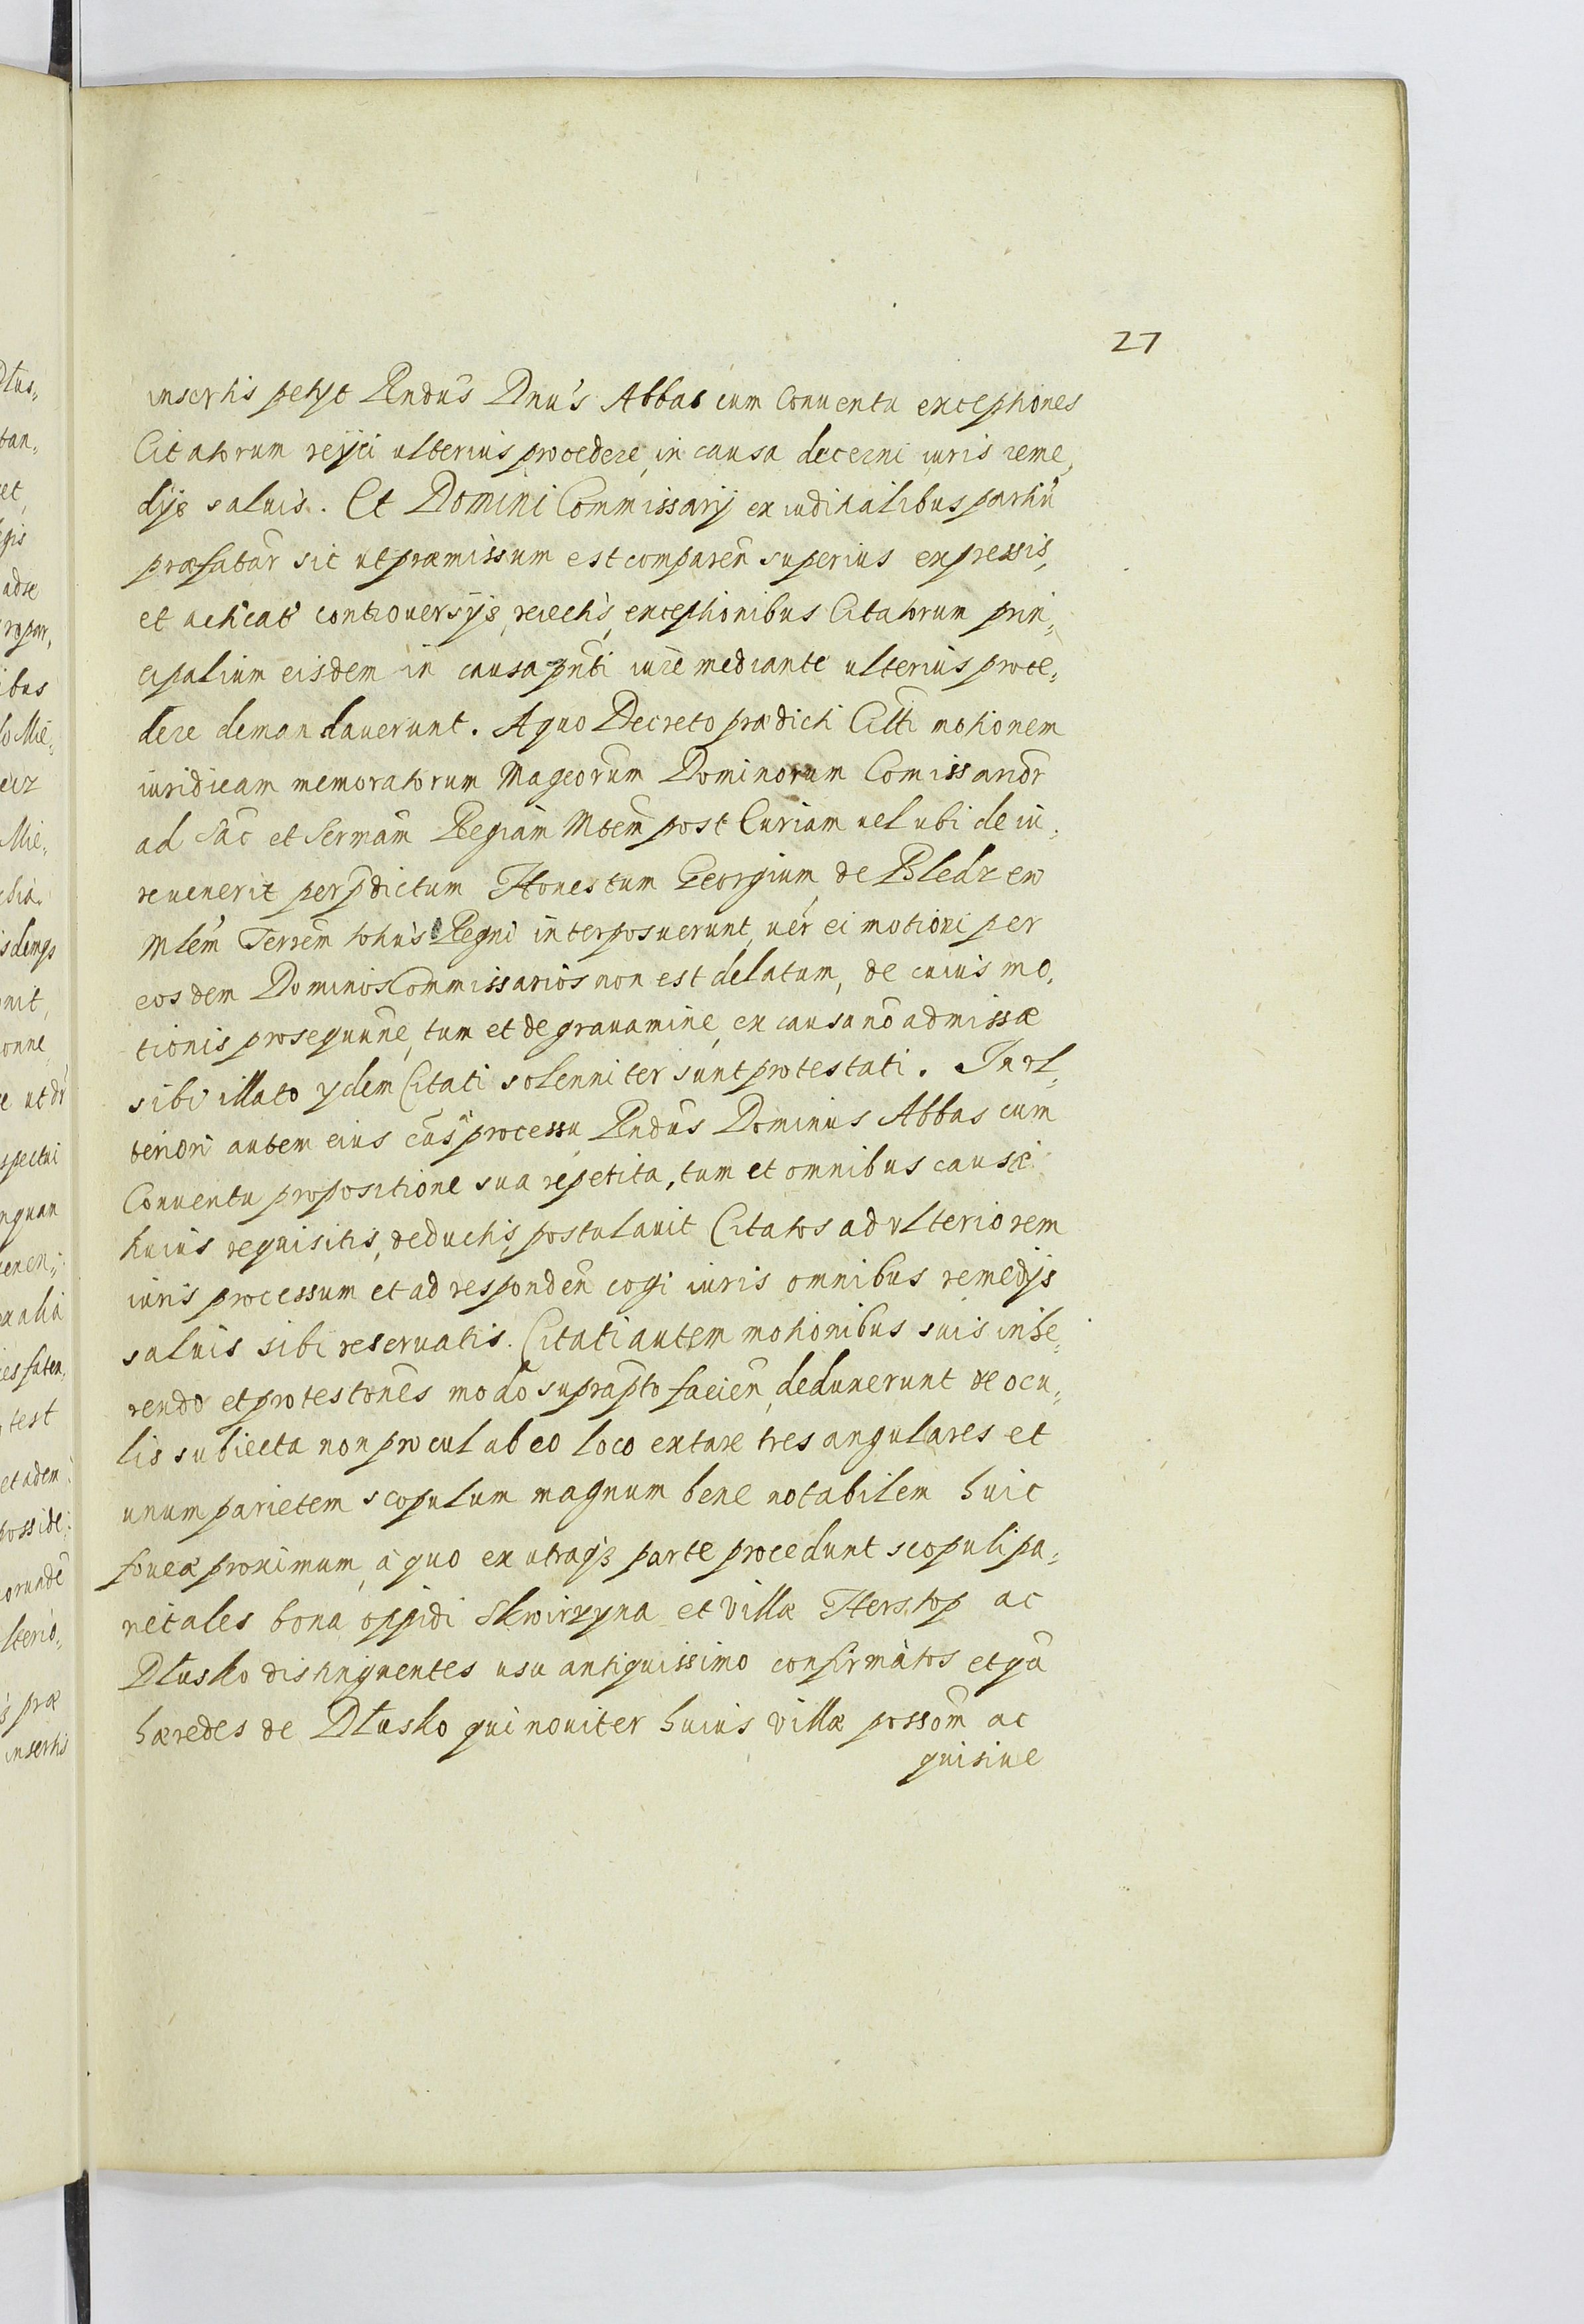 27
insertis petyt Rndus Dnus Abbas cum Conuentu exceptiones
Citatorum reijci ulterius procedere in causa decerni iuris reme,
dijs saluis. Et Domini Commissarij ex iuditialibus partiu
præfatar sic ut præmissum est comparen superius expressis,
et acticat controuersijs, reiectis, exceptionibus Citatorum prin,
cipalium eisdem in causa pnti iure mediante ulterius proce,
dere demandauerunt. A quo Decreto prædicti Citti motionem
iuridicam memoratorum Mageorum Dominorum Comissarior
ad Sac et Sermam Regiam Mtem post Curiam uel ubi de iu,
re uenerit per pdictum Honestum Georgium de Bledzew
Mlem Terrem totius Regni interposuerunt, uer ei motioni per
eosdem Dominos Commissarios non est delatum, de cuius mo,
tionis prosequune, tum et de grauamine, ex causa no admissæ
sibi illato ydem Citati solenniter sunt protestati. In vl,
teriori autem eius cus processu Rndus Dominus Abbas cum
Conuentu propositione sua repetita, tum et omnibus causæ
huius requisitis, deductis, postulauit Citatos ad vlteriorem
iuris processum et ad responden cogi iuris omnibus remedijs
saluis sibi reseruatis. Citati autem motionibus suis inhe,
rendo et protestones modo suprapto facien, deduxerunt de ocu,
lis subiecta non procul ab eo loco extare tres angulares et
unum parietem scopulum magnum bene notabilem huic
foueæ proximum, a quo ex utraqz parte procedunt scopuli pa,
rietales bona oppidi Skwirzyna et villæ Hersztop ac
Dłusko distinguentes usu antiquissimo confirmatos et qa
hæredes de Dłusko qui nouiter huius villæ possom ac
quisiue